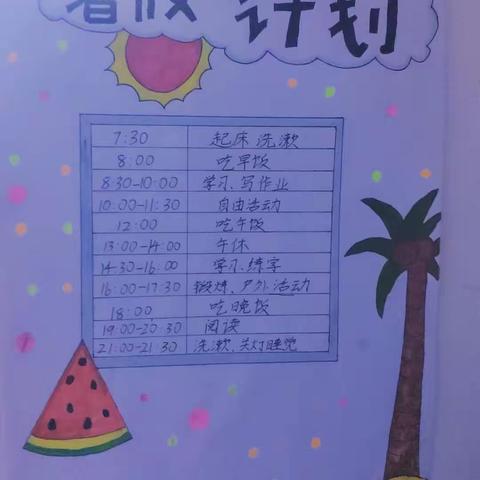 暑假计划
7:30 起床 洗漱
8:00 吃早饭
8:30-10:00 学习、写作业
10:00-11:30 自由活动
12:00 吃午饭
13:00-14:00 午休
14:30-16:00 学习、练字
16:00-17:30 锻炼、户外活动
18:00 吃晚饭
19:00-20:30 阅读
21:00-21:30 洗漱、关灯睡觉